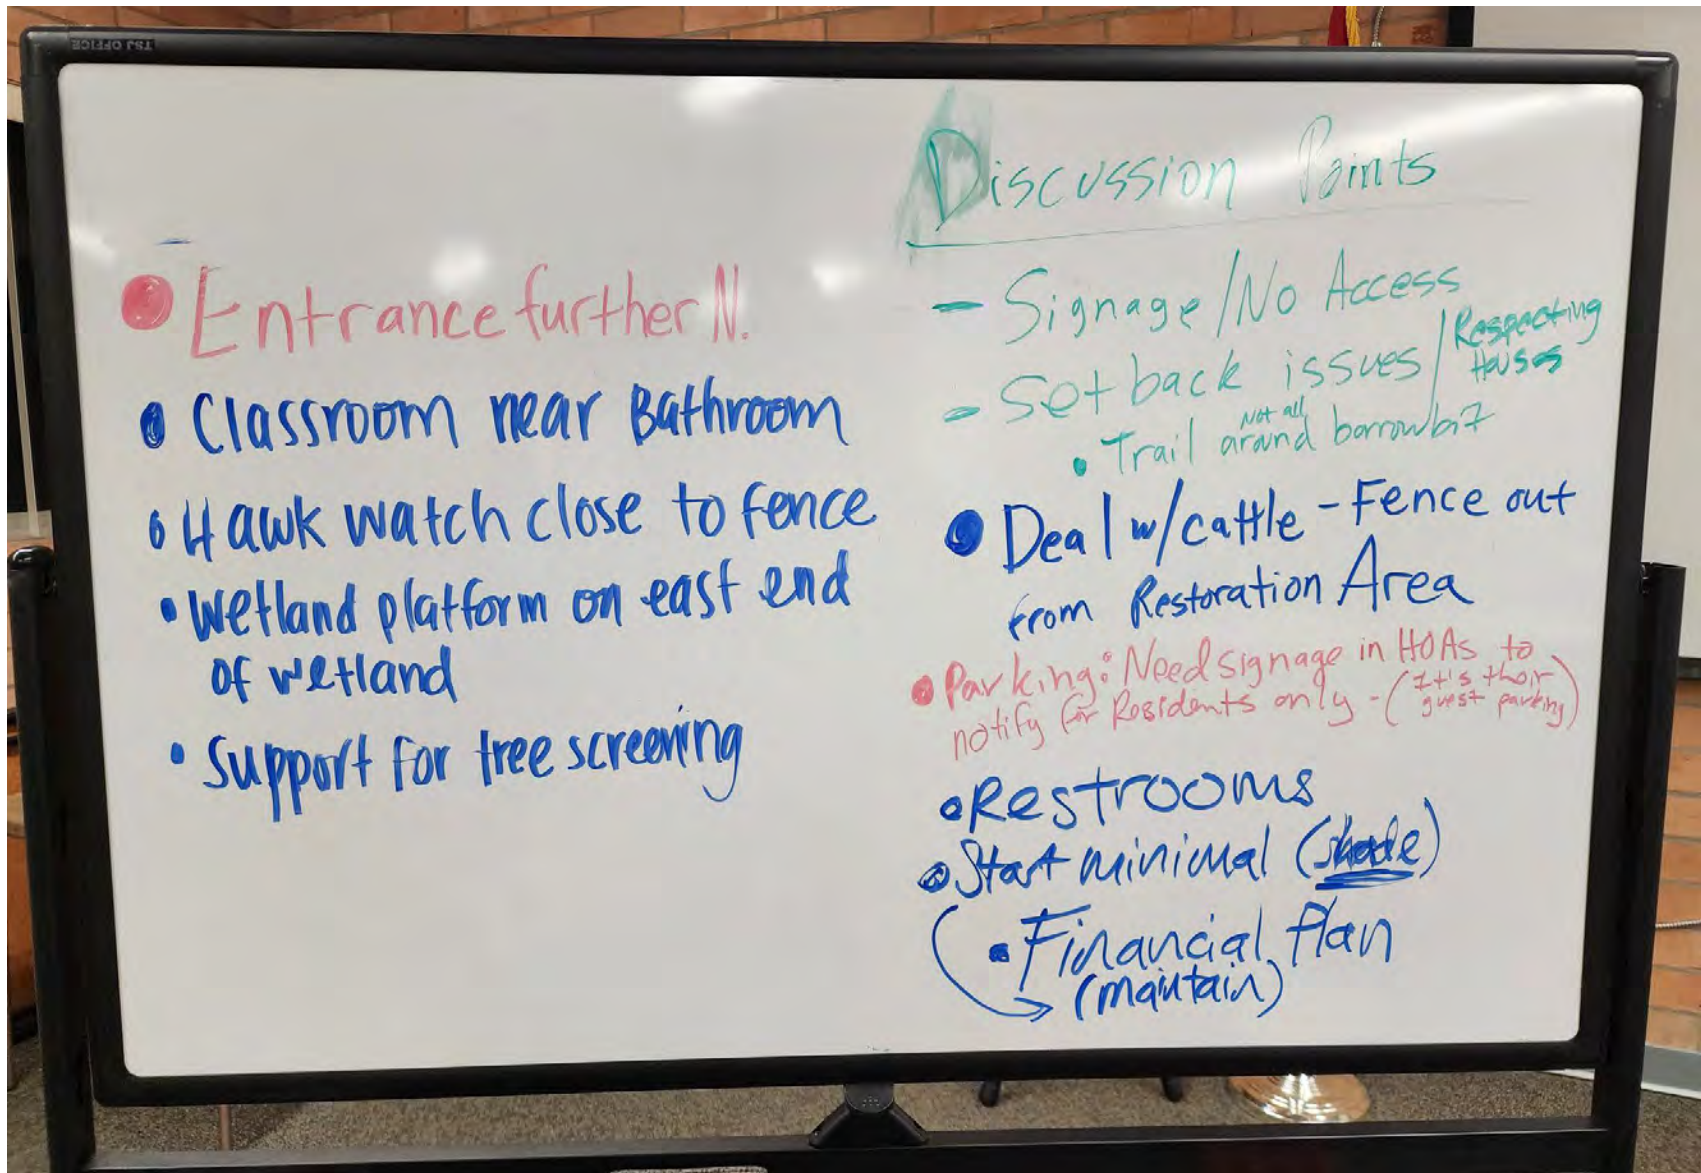 TSJ OFFICE
Entrance further N.
Classroom near Bathroom
Hawk watch close to fence
Wetland platform on east end
of wetland
Support for tree screening
Discussion Points
- Signage/No Access
- Setback issues / Respecting
Houses
Not all
• Trail around borrow bit
• Deal w/cattle - Fence out
from Restoration Area
• Parking: Need signage in HOAs to
notify for Residents only - (It's their
guest parking)
• Restrooms
• Start minimal (shade)
• Financial Plan
(maintain)